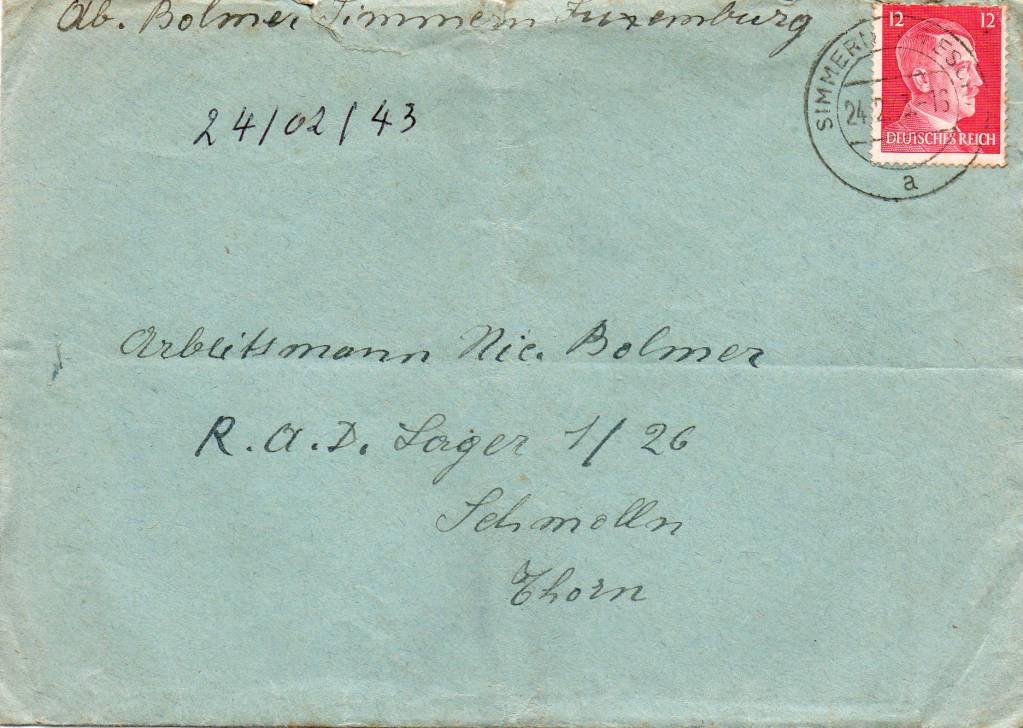 Ab. Bolmer Simmern Luxemburg
12 12
SIMMERN
24.2.
DEUTSCHES REICH
a
24/02/43
Arbeitsmann Nic. Bolmer
R.A.D. Lager 1/26
Schmolln
Thorn